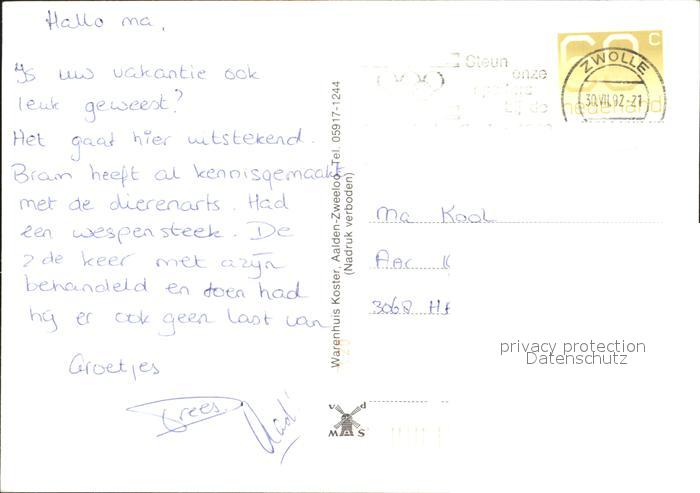 Hallo ma,
Is uw vakantie ook
leuk geweest?
Het gaat hier uitstekend.
Bram heeft al kennisgemaakt
met de dierenarts. Had
een wespensteek. De
2de keer met azijn
behandeld en toen had
hij er ook geen last van
Groetjes
Trees
Warenhuis Koster, Aalden-Zweeloo, Tel. 05917-1244
(Nadruk verboden)
v d
MAS
Steun
onze
bij de
60 c
nederland
ZWOLLE
30.VII.92-21
Ma Kool
Aar
3068 H
privacy protection
Datenschutz